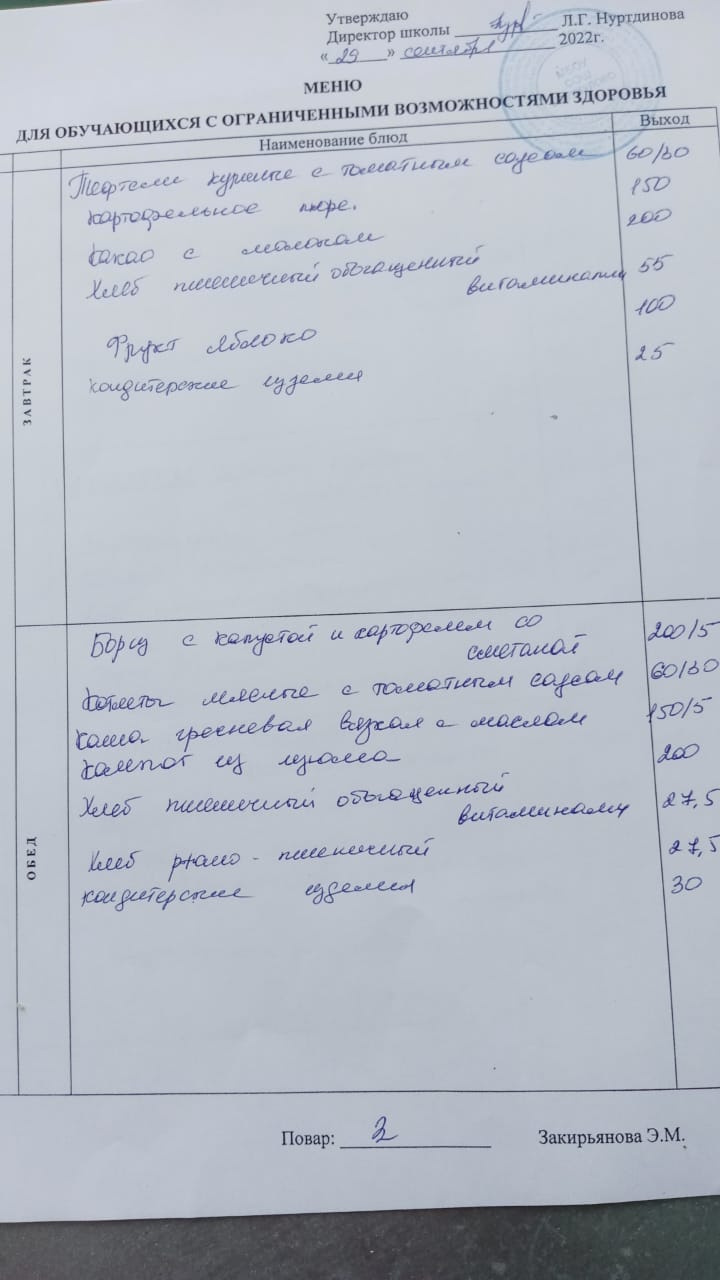 Утверждаю
Директор школы Л.Г. Нуртдинова
«29» сентября 2022г.
МЕНЮ
ДЛЯ ОБУЧАЮЩИХСЯ С ОГРАНИЧЕННЫМИ ВОЗМОЖНОСТЯМИ ЗДОРОВЬЯ
Наименование блюд Выход
ЗАВТРАК
Тефтели куриные с томатным соусом 60/30
картофельное пюре. 150
какао с молоком 200
Хлеб пшеничный обогащенный
витаминами 55
Фрукт яблоко 100
кондитерские изделия 25
ОБЕД
Борщ с капустой и картофелем со
сметаной 200/5
котлеты мясные с томатным соусом 60/30
каша гречневая вязкая с маслом 150/5
компот из изюма 200
Хлеб пшеничный обогащенный
витаминами 27,5
Хлеб ржано-пшеничный 27,5
кондитерские изделия 30
Повар: Закирьянова Э.М.